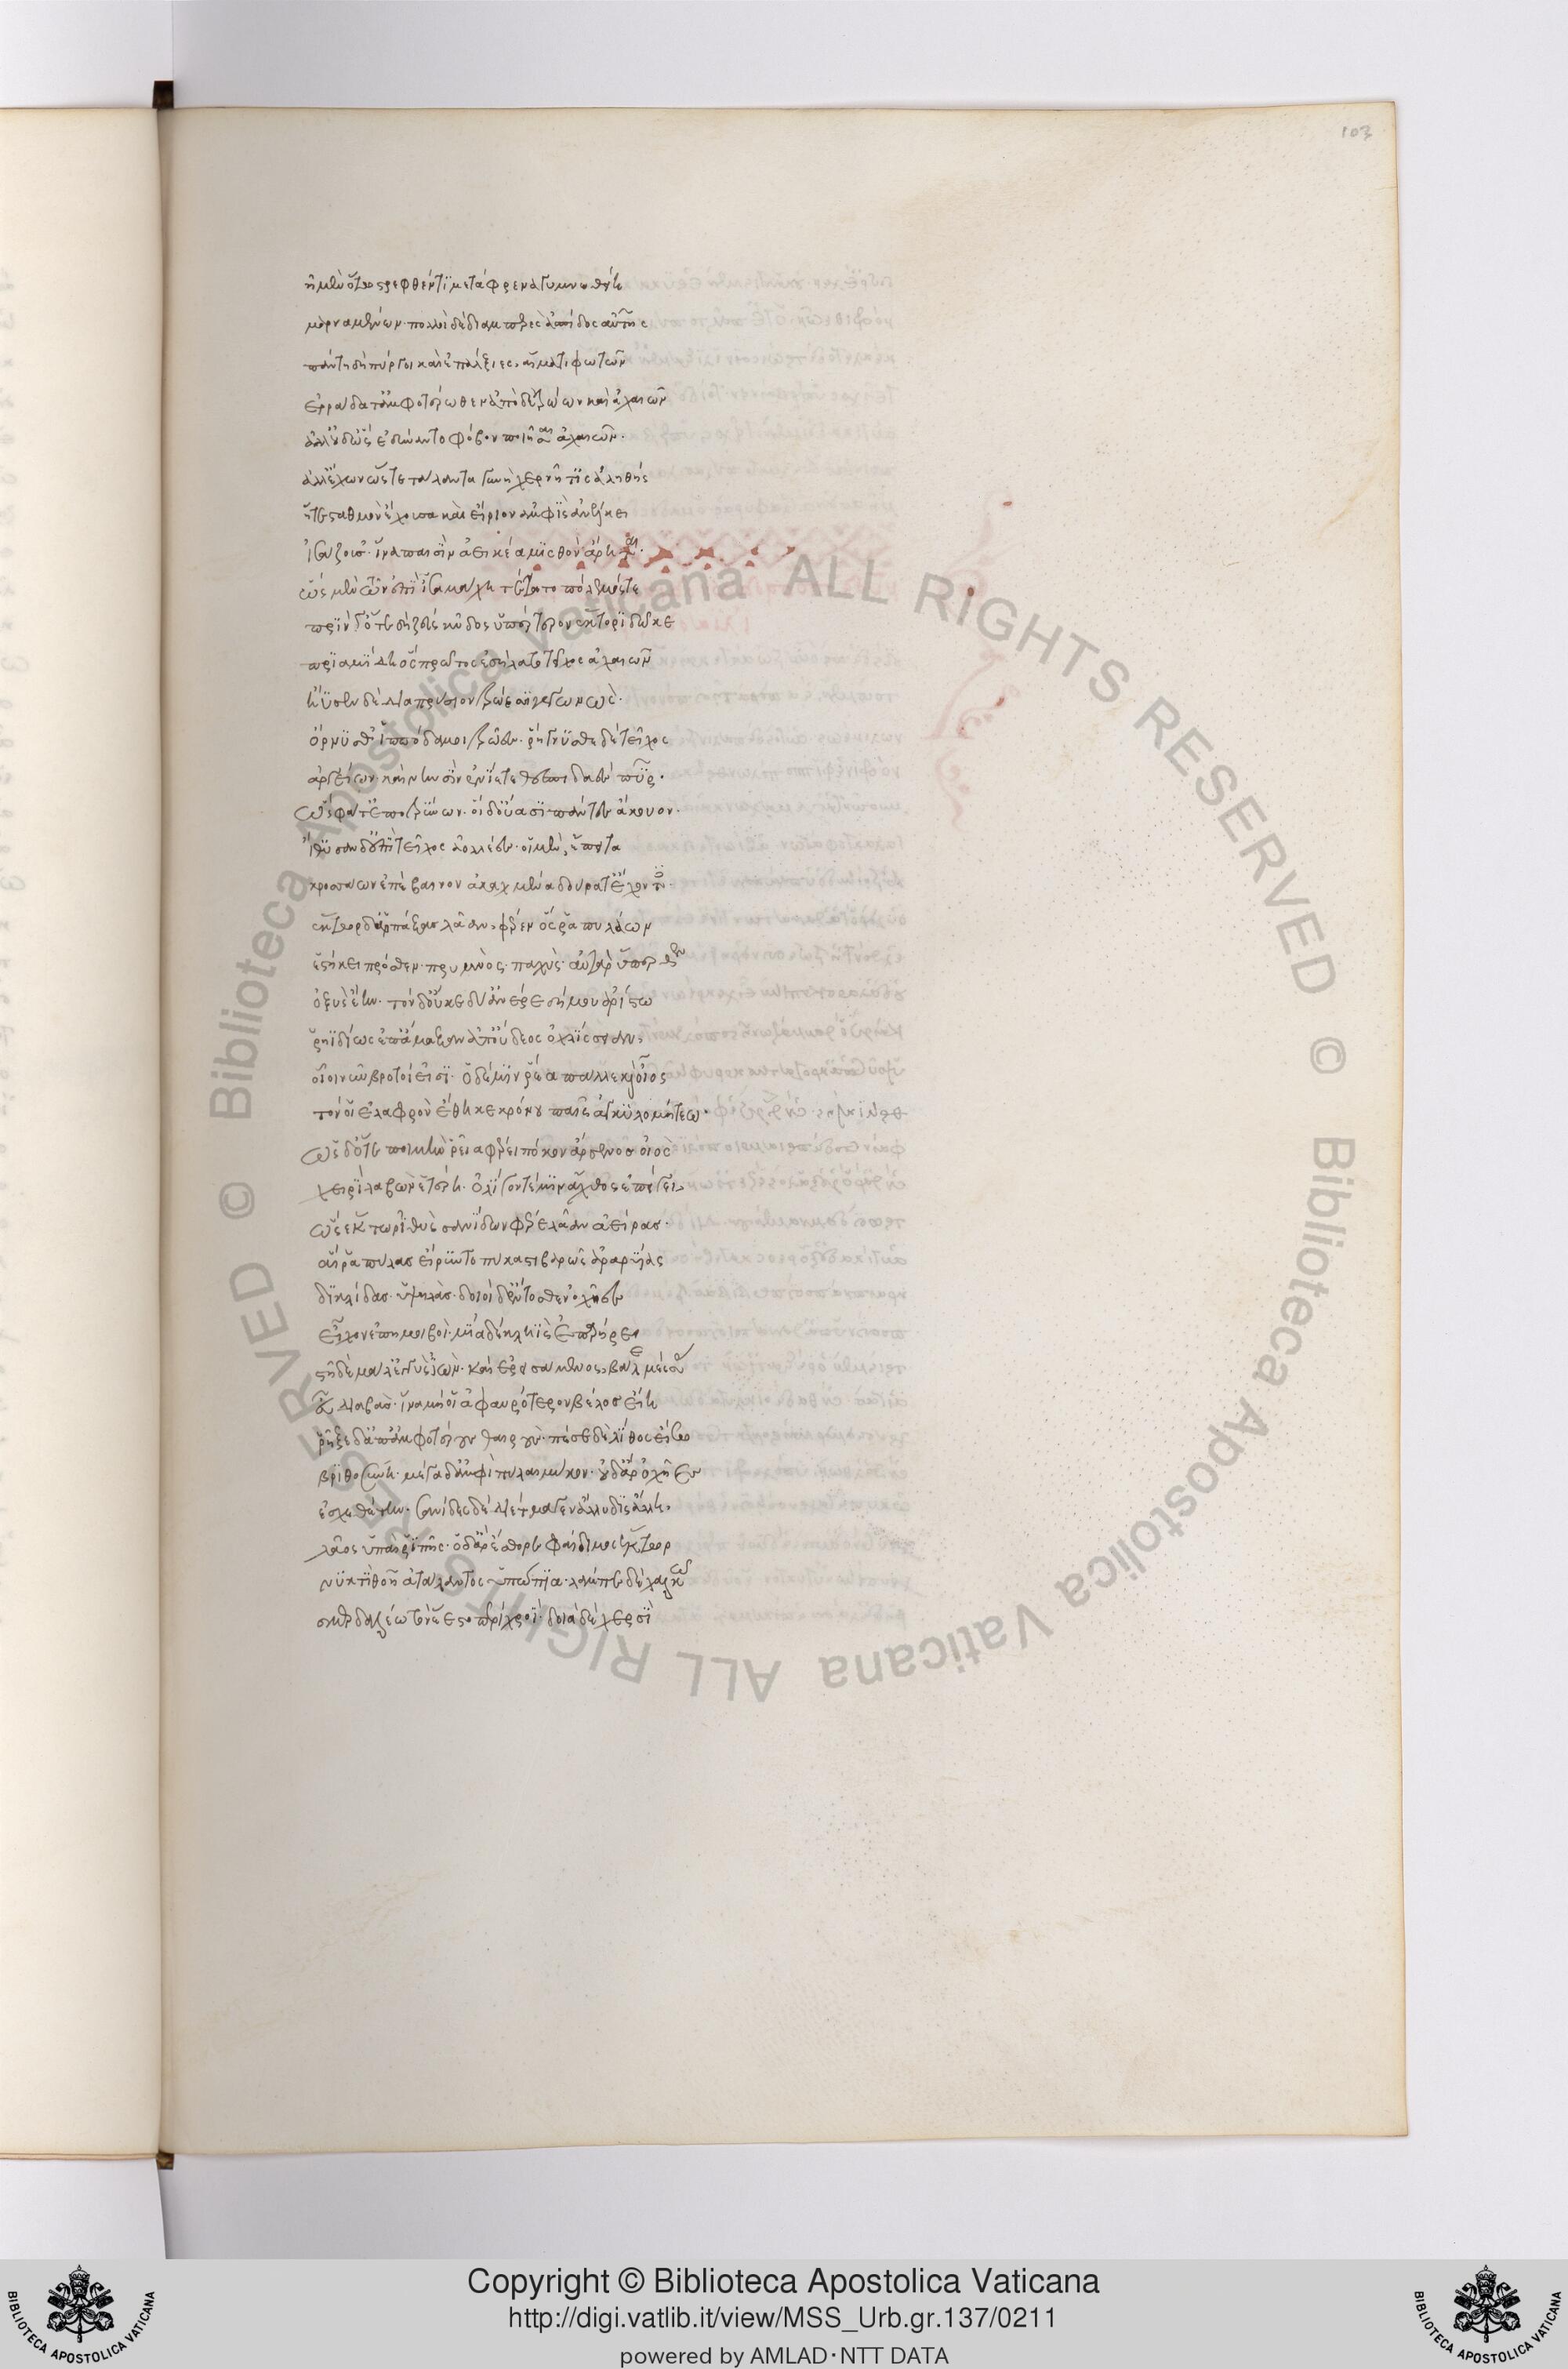 103
ἠμὲν ὅτεω στρεφθέντι μετάφρενα γυμνωθείη
μαρναμένων· πολλοὶ δὲ διαμπερὲς ἀσπίδος αὐτῆς
πάντη δὴ πύργοι καὶ ἐπάλξιες αἵματι φωτῶν
ἐρράδατ' ἀμφοτέρωθεν ἀπὸ τρώων καὶ ἀχαιῶν
ἀλλ' οὐδ' ὣς ἐδύναντο φόβον ποιῆσαι ἀχαιῶν·
ἀλλ' ἔχον ὥστε τάλαντα γυνὴ χερνῆτις ἀληθής
ἥτε σταθμὸν ἔχουσα καὶ εἴριον ἀμφὶς ἀνέλκει
ἰσάζουσ'· ἵνα παισὶν ἀεικέα μισθὸν ἄρηται·
ὣς μὲν τῶν ἐπὶ ἶσα μάχη τέτατο πόλεμός τε
πρίν γ' ὅτε δὴ ζεὺς κῦδος ὑπέρτερον ἕκτορι δῶκε
πριαμίδη ὃς πρῶτος ἐσήλατο τεῖχος ἀχαιῶν
ἤϋσεν δὲ διαπρύσιον τρώεσσι γεγωνώς·
ὄρνυσθ' ἱππόδαμοι τρῶες· ῥήγνυσθε δὲ τεῖχος
ἀργείων καὶ νηυσὶν ἐνίετε θεσπιδαὲς πῦρ·
ὣς φάτ' ἐποτρύνων· οἱ δ' οὔασι πάντες ἄκουον·
ἴθυσαν δ' ἐπὶ τεῖχος ἀολλέες· οἱ μὲν ἔπειτα
κροσσάων ἐπέβαινον ἀκαχμένα δούρατ' ἔχοντες·
ἕκτωρ δ' ἁρπάξας λᾶαν φέρεν ὅς ῥα πυλάων
ἑστήκει πρόσθεν· πρυμνὸς παχὺς· αὐτὰρ ὕπερθεν
ὀξὺς ἔην· τὸν δ' οὔ κε δύ' ἀνέρε δήμου ἀρίστω
ῥηιδίως ἐπ' ἄμαξαν ἀπ' οὔδεος ὀχλίσσειαν,
οἷοι νῦν βροτοί εἰσι· ὁ δέ μιν ῥέα πάλλε καὶ οἶος
τόν οἱ ἐλαφρὸν ἔθηκε κρόνου παῖς ἀγκυλομήτεω·
ὡς δ' ὅτε ποιμὴν ῥεῖα φέρει πόκον ἄρσενος οἰὸς
χειρὶ λαβὼν ἑτέρη· ὀλίγον τέ μιν ἄχθος ἐπείγει,
ὣς ἕκτωρ ἰθὺς σανίδων φέρε λᾶαν ἀείρας·
αἵ ῥα πύλας εἴρυντο πύκα στιβαρῶς ἀραρυίας
δικλίδας ὑψηλάς· δοιοὶ δ' ἔντοσθεν ὀχῆες
εἶχον ἐπημοιβοί· μία δὲ κληῒς ἐπαρήρει
στῆ δὲ μάλ' ἐγγὺς ἰών· καὶ ἐρεισάμενος βάλε μέσσας
εὖ διαβάς· ἵνα μή οἱ ἀφαυρότερον βέλος εἴη
ῥῆξε δ' ἀπ' ἀμφοτέρους θαιρούς· πέσε δὲ λίθος εἴσω
βριθοσύνη· μέγα δ' ἀμφὶ πύλαι μύκον· οὐδ' ἄρ' ὀχῆες
ἐσχεθέτην· σανίδες δὲ διέτμαγεν ἄλλυδις ἄλλη
λᾶος ὑπαὶ ῥιπῆς· ὁ δ' ἄρ' ἔσθορε φαίδιμος ἕκτωρ
νυκτὶ θοῇ ἀτάλαντος ὑπώπια· λάμπε δὲ χαλκῷ
σμερδαλέῳ τὸν ἕεστο περὶ χροΐ· δοιὰ δὲ χερσὶ
Copyright © Biblioteca Apostolica Vaticana
http://digi.vatlib.it/view/MSS_Urb.gr.137/0211
powered by AMLAD·NTT DATA
© Biblioteca Apostolica Vaticana ALL RIGHTS RESERVED © Biblioteca Apostolica Vaticana ALL RIGHTS RESERVED
BIBLIOTECA APOSTOLICA VATICANA
BIBLIOTECA APOSTOLICA VATICANA